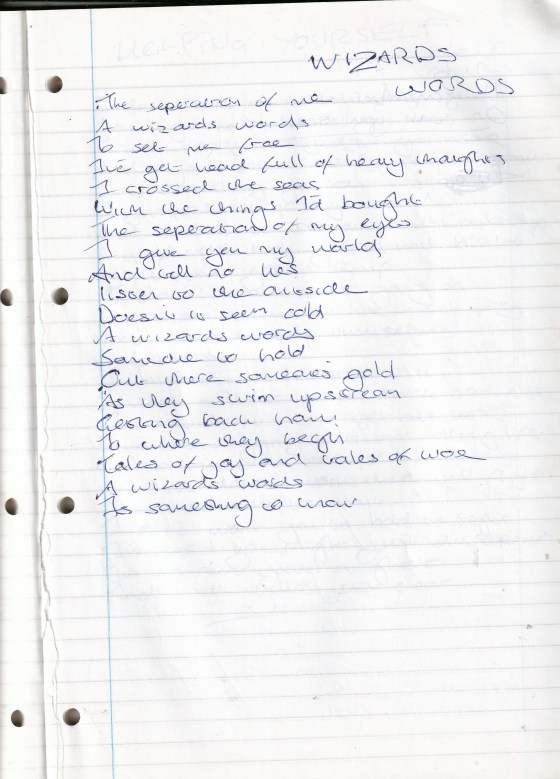 WIZARDS
WORDS
The seperation of me
A wizards words
To set me free
I've got head full of heavy thoughts
I crossed the seas
With the things I'd bought
The seperation of my eyes
I give you my world
And tell no lies
listen to the outside
Doesn't it seem cold
A wizards words
Someone to hold
Out there someones gold
As they swim upstream
Getting back home
To where they begin
Tales of joy and tales of woe
A wizards words
Is something to know